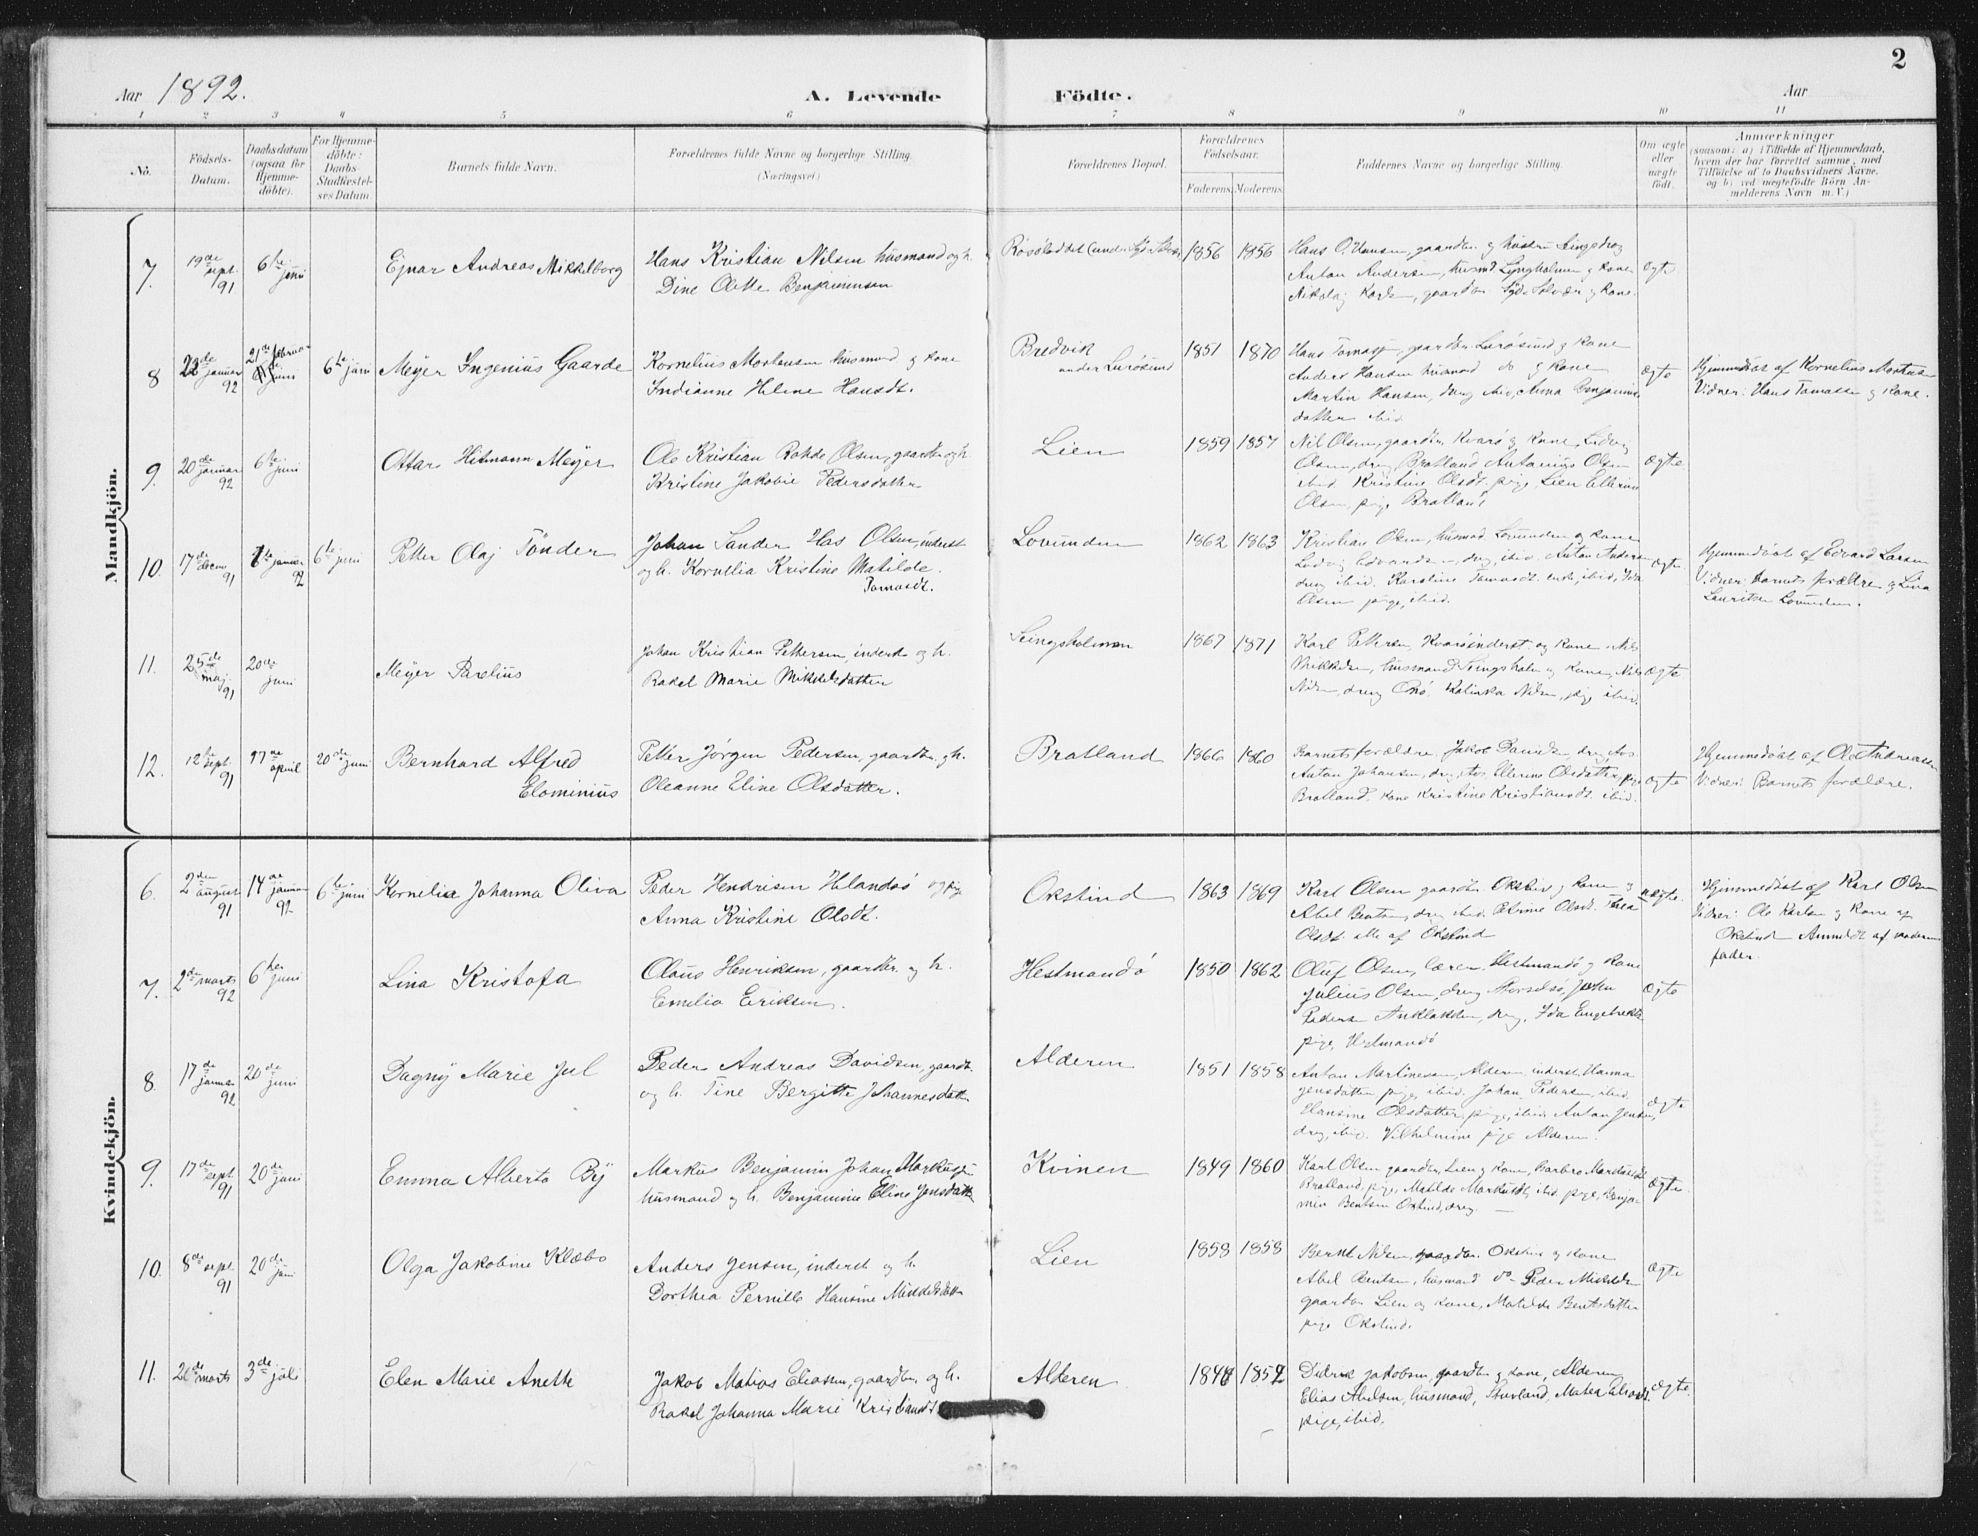 2
Aar 1892.
A. Levende Födte.
Aar
1 2 3 4 5 6 7 8 9 10 11
No.
Födsels-Datum.
Daabsdatum (ogsaa for Hjemmedöbte).
For Hjemmedöbte: Daabs-Stadfæstelses Datum
Barnets fulde Navn.
Forældrenes fulde Navne og borgerlige Stilling. (Næringsvei)
Forældrenes Bopæl.
Forældrenes Födselsaar.
Faderens Moderens
Faddernes Navne og borgerlige Stilling.
Om ægte eller uægte födt.
Anmærkninger
(saasom: a) i Tilfælde af Hjemmedaab, hvem der har forrettet samme, med Tilföielse af to Daabsvidners Navne, og b) ved uægtefödte Börn Anmelderens Navn m. V.)
Mandkjön.
7. 19de sept. 91 6te juni Ejnar Andreas Mikkelborg
Hans Kristian Nilsen husmand og h.
Dine Olette Benjaminsen
1856 1856
Hans O. Hansen, gaardbr. og hustru
Anton Andersen, husmd. Lyngholmen og kone
Nikolaj Karls, gaardbr. Syd Solvær og kone.
ægte
8 22de januar 92 21de februar 6te juni Meyer Ingenius Gaarde
Kornelius Mortensen husmand og kone
Indianne Helene Hansdt.
Bredvik under Lurösund
1851 1870
Hans Tomass, gaardbr Lurösund og kone
Anders Hansen husmand do og kone
Martin Hansen, dreng ibid, Anna Benjamins
datter ibid.
ægte
Hjemmedöbt af Kornelius Mortensen
Vidner: Hans Tomassen og kone.
9. 20de januar 92 6te juni Ottar Hitmann Meyer
Ole Kristian Rohde Olsen, gaardbr og h.
Kristine Jakobie Pedersdatter
Lien
1859 1857
Nils Olsen, gaardbr. Kvarö og kone, Ludvig
Olsen, dreng Bratland Antonius Olsen
ibid. Kristine Olsdt. pige, Lien Ellerine
Olsen pige Bratland
ægte
10. 17de 91 januar 92 6te juni Petter Olaj Tönder
Johan Sander Has Olsen, inderst
og h. Kornelia Kristine Matilde
Tomasdt.
Lovunden
1862 1863
Kristian Olsen, husmd. Lovunden og kone
Ludvig Edvards, dreng, ibid, Anton Anders
dreng ibid. Karoline Tomasdt. enke, ibid, Ida
Olsen pige, ibid.
ægte
Hjemmedöbt af Edvard Larsen
Vidner: barnets forældre og Lina
Lauritsen Lovunden.
11. 25de maj. 91 20de juni Meyer Parelius
Johan Kristian Pettersen, inderst og h.
Rakel Marie Mikkelsdatter
1867 1871
Karl Pettersen, Kvaröinderst og kone, Nils
Mikkelsen, husmand og kone, Nils
Nilsen, dreng Onö. Katinka Nilsen, pige ibid.
ægte
12. 12te sept. 91 17de april 20de juni Bernhard Alfred
Elominius
Petter Jörgen Pedersen, gaardbr. og h.
Oleanne Eline Olsdatter.
Bratland
1866 1860
Barnets forældre, Jakob Daniels dreng, Aas
Anton Johansen, dreng, Aas, Ellerine Olsdatter, pige
Bratland. kone Kristine Kristiansdt. ibid.
ægte
Hjemmedöbt af Ole Andreassen
Vidner: Barnets forældre.
Kvindekjön.
6. 2den august 91 14de januar 92 6te juni Kornelia Johanna Oliva
Peder Hendriksen og pige
Anna Kristine Olsdt.
Okstind
1863 1869
Karl Olsen gaardbr. Okstind og kone og
Abel Bentsen, dreng ibid. Thea
Olsdt. alle af Okstind
uægte.
Hjemmedöbt af Karl Olsen
Vidner: Ole Karlsen og kone af
Okstind Anmeldt af moderens
fader.
7. 2de marts 92 6te juni Lina Kristofa
Claus Henriksen, gaardbr. og h.
Emelia Eriksen.
Hestmandö
1850 1862
Oluf Olsen, lærer Hestmandö og kone
Julius Olsen, dreng
Pedersen dreng. Ida Engebrekts
pige, Hestmandö
ægte
8. 17de januar 92 20de juni Dagny Marie Jul
Peder Andreas Davidsen, gaardbr
og h. Tine Bergitte Johannesdatter
Alderen
1851 1858
Anton Martinesen, Alderen, inderst, Hanna
Jensdatter pige, ibid. Johan Pedersen, ibid.
Hansine Olsdatter, pige, ibid. Anton Jensen,
dreng, ibid. Vilhelmine pige Alderen.
ægte
9. 17de sept. 91 20de juni Emma Alberta By
Markus Benjamin Johan Markusen
husmand og h. Benjamine Eline Jensdatter
Kvinen
1849 1860
Karl Olsen gaardbr, Lien og kone, Barbro
Bratland, pige, Matilde Markusdt, ibid. pige, Benja-
min Bentsen Okstind, dreng.
ægte.
10. 8de sept. 91 20de juni Olga Jakobine Klæbo
Anders Jensen, inderst og h.
Dorthea Pernille Hansine Mikkelsdatter
Lien
1858 1858
Bernt Nilsen, gaardbr. Okstind og kone
Abel Bentsen, husmand do Peder Mikkelsen
gaardbr Lien og kone, Matilde Bentsdatter
pige Okstind.
ægte
11. 26de marts 3de juli Elen Marie Anette
Jakob Matias Eliasen, gaardbr. og h.
Rakel Johanna Marie Kristiansdt
Alderen
Didrik Jakobsen, gaardbr og kone, Alderen
Elias Abelsen, husmand, Storland,
pige, ibid.
ægte.